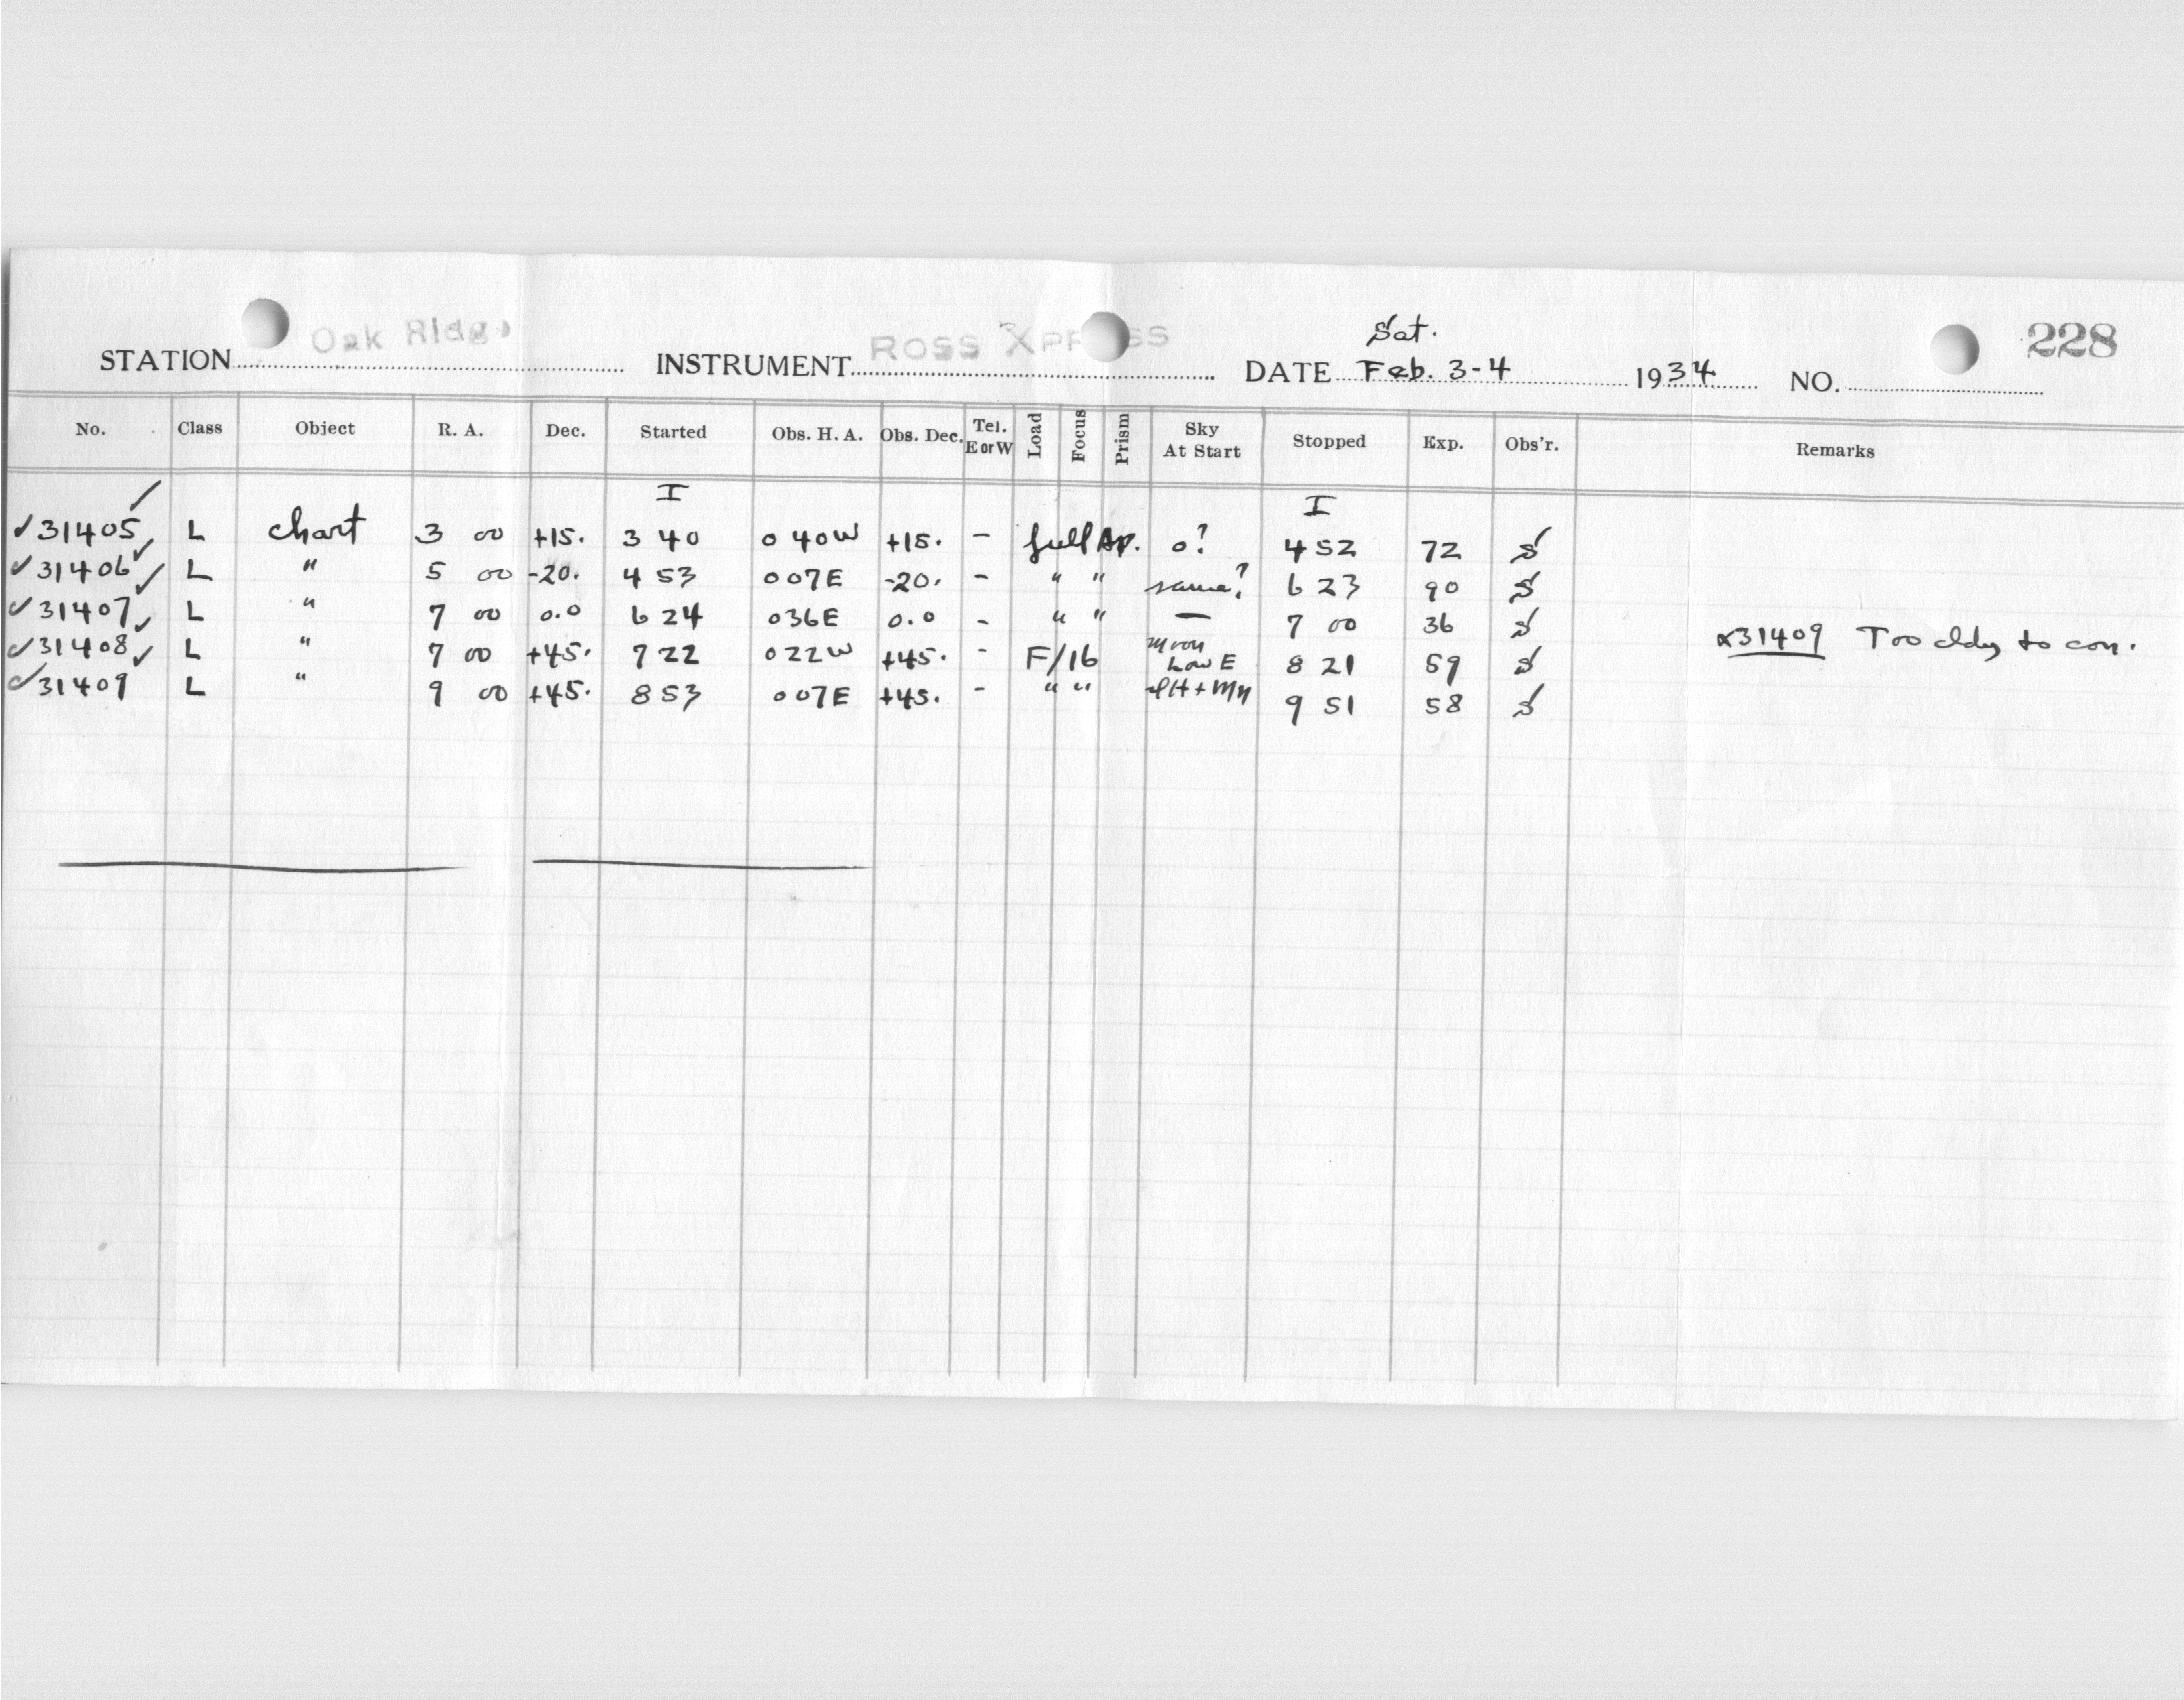 Sat.
STATION Oak Ridge INSTRUMENT ROSS XPRESS DATE Feb. 3-4 1934 NO. 228
No. Class Object R. A. Dec. Started Obs. H. A. Obs. Dec. Tel. E or W Load Focus Prism Sky At Start Stopped Exp. Obs'r. Remarks
I I
✓31405 ✓ L chart 3 00 +15. 3 40 0 40W +15. - full Ap. 0? 4 52 72 S
✓31406 ✓ L " 5 00 -20. 4 53 007E -20. - " " same? 6 23 90 S
✓31407 ✓ L " 7 00 0.0 6 24 036E 0.0 - " " — 7 00 36 S
✓31408 ✓ L " 7 00 +45. 7 22 022W +45. - F/16 moon Low E 8 21 59 S
✓31409 ✓ L " 9 00 +45. 8 53 007E +45. - " " 9 51 58 S
x31409 Too cldy to con.